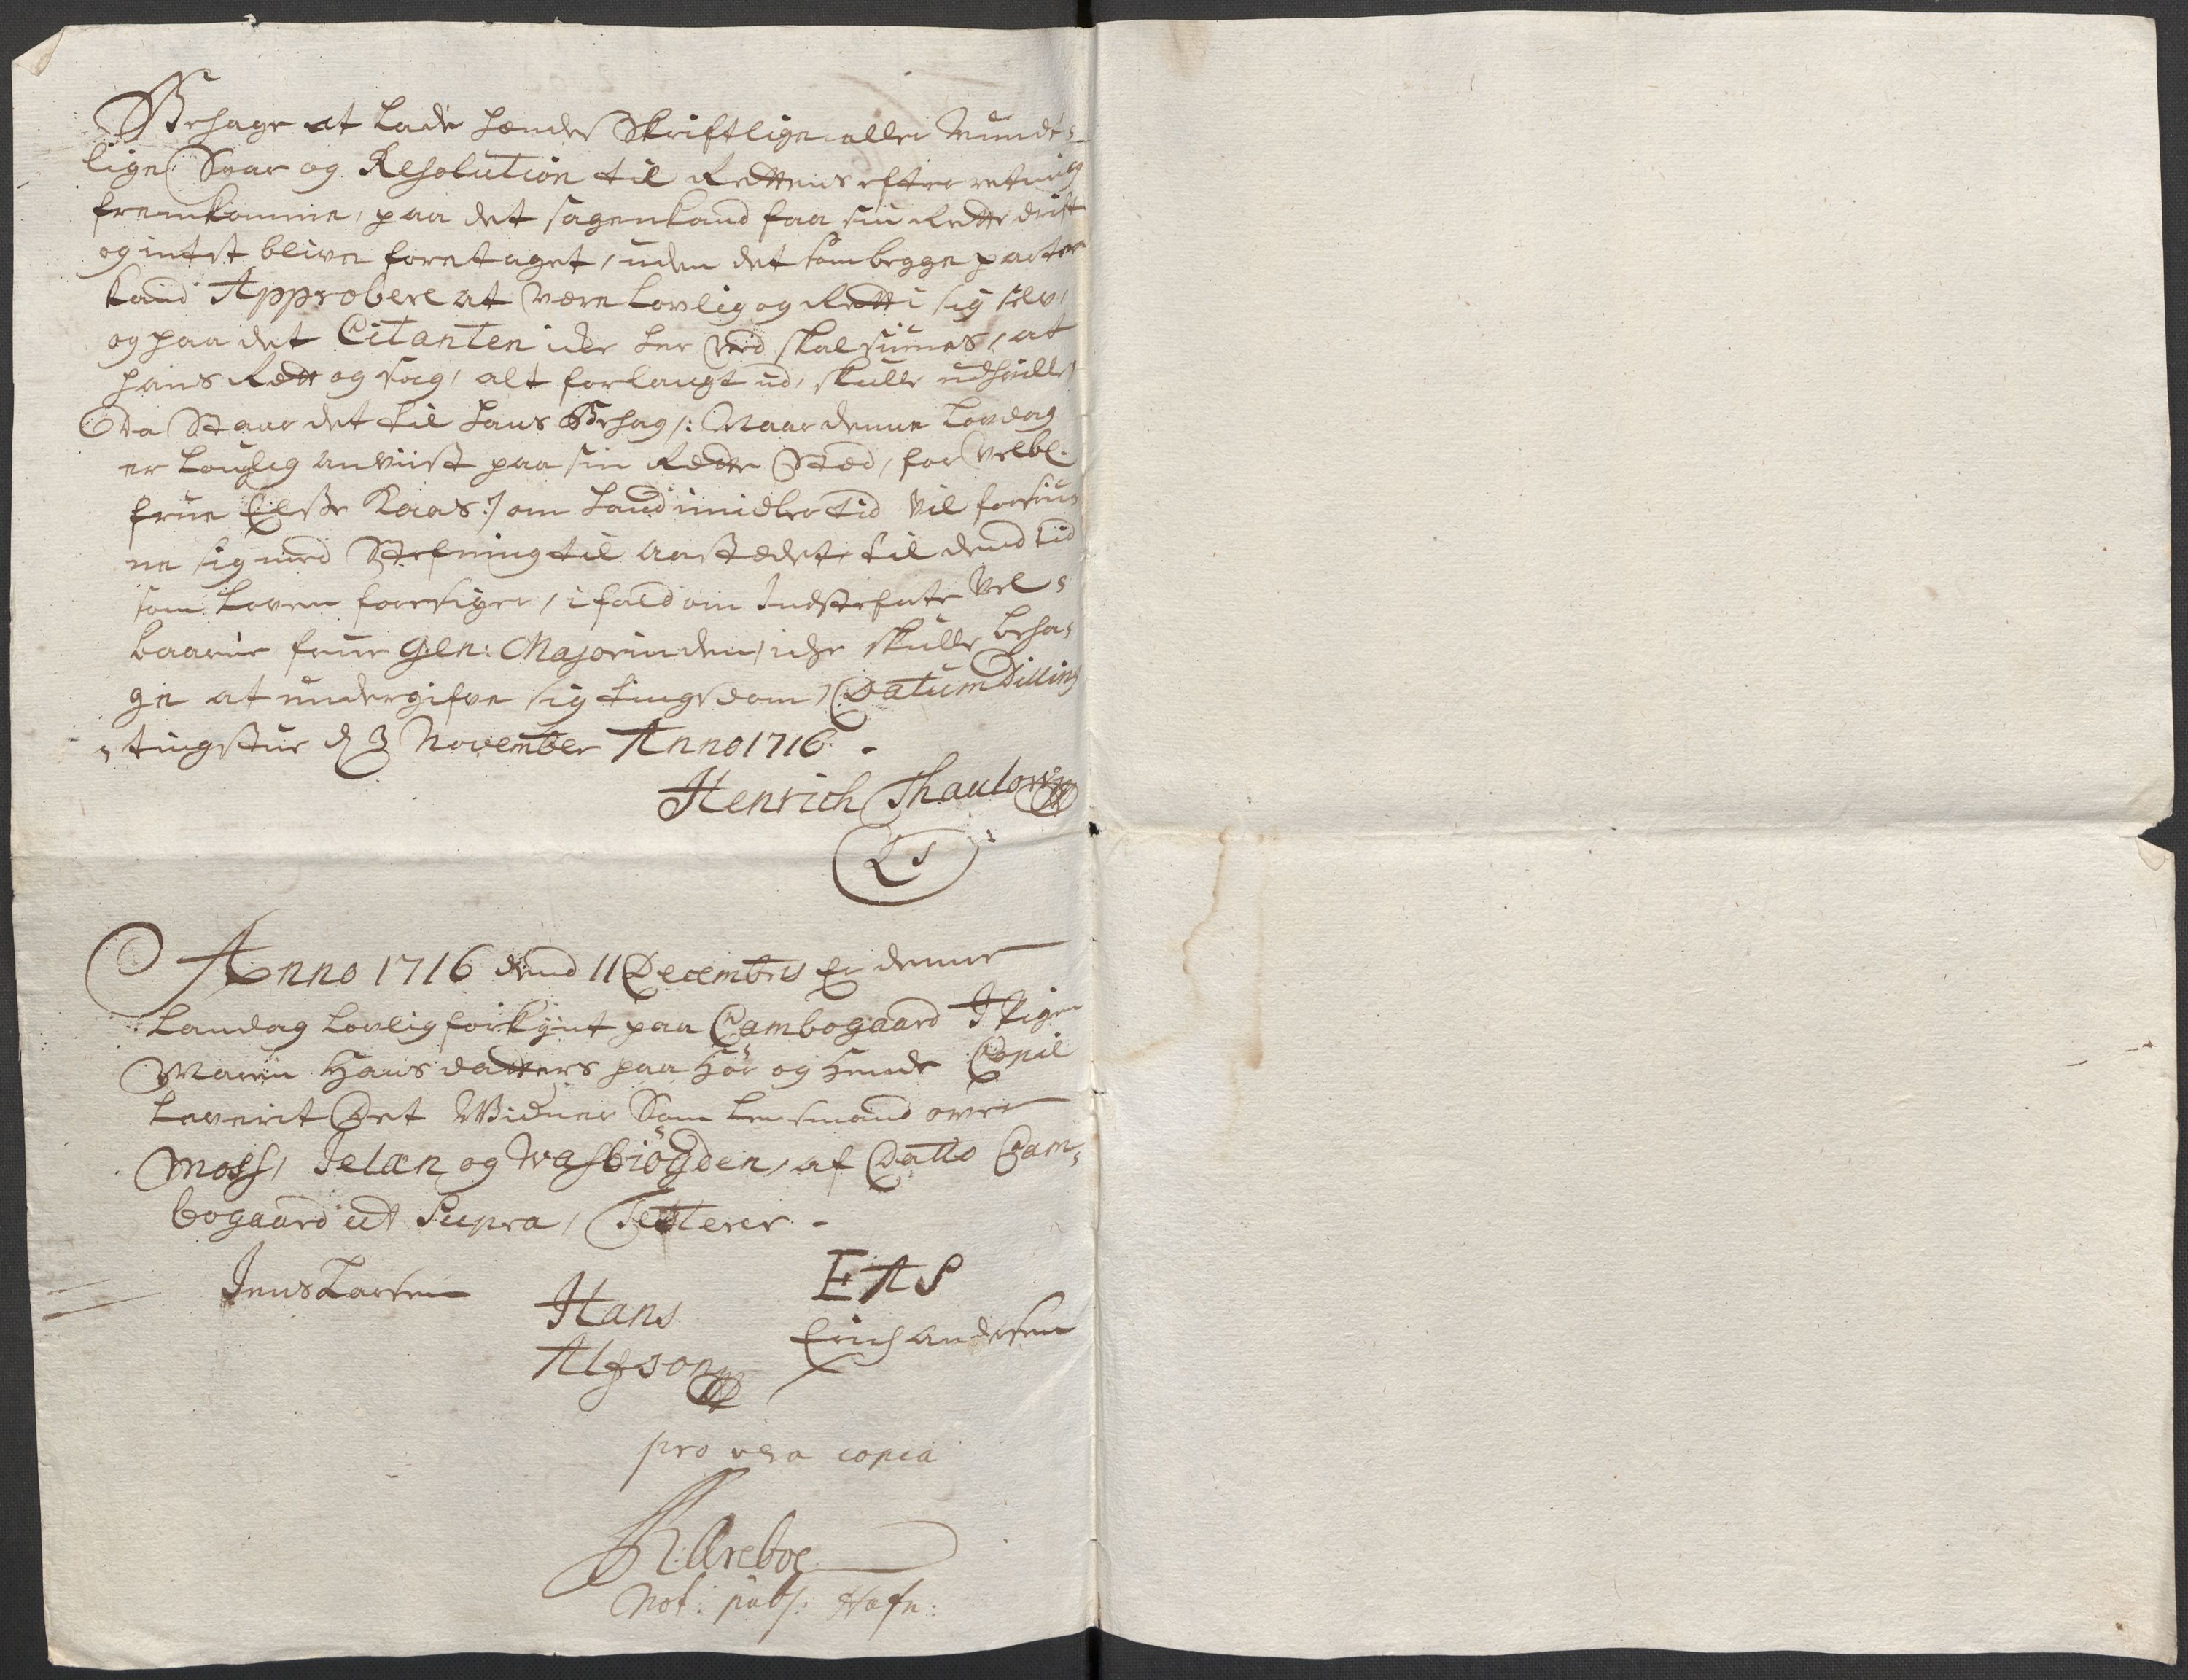 Behage at lade hendes Skriftlige eller Mund-
lige Svar og Resolution til Rettens efterretning
fremkomme, paa det sagen kand faa sin Rette drift
og intet blive foretaget, uden det som begge parter
kand Approbere at være lovlig og Rett i sig selv,
og paa det Citanten icke her ved skal siunes, at
hans Rett og sag, alt forlangt ud, skulle udhville,
Da Staar det til hans Behag /: Naar denne Lovdag
er louglig anviist paa sin Rette Stæd, for Velbl.
frue Elsse Kaas :/ om hand imidlertid vil forsiu-
ne sig med Stefning til Aastædet til dend tid
som loven foresiger, i fald om Indstefnte Vel-
baarne frue Gen: Majorinden, icke skulle beha-
ge at undergifve sig tingsdom, Datum Dilling
tingstue d 3 November Anno 1716. -
Henrich Thaulow
LS
Anno 1716 dend 11 Decembris Er denne
Laudag lovlig forkynt paa Cambogaard I Pigen
Maren Hansdatters paa Hör og hende Copie
leverit Det Widner Som lensmand over
Moss, Jelœn og Wasbiögden, af Datto Cam-
bogaard ut Supra, Testerer -
Jens Larsen
Hans
Alfson
EAS
Erich Andersen
pro vera copia
R: Areboe
Not: publ: Hafn: